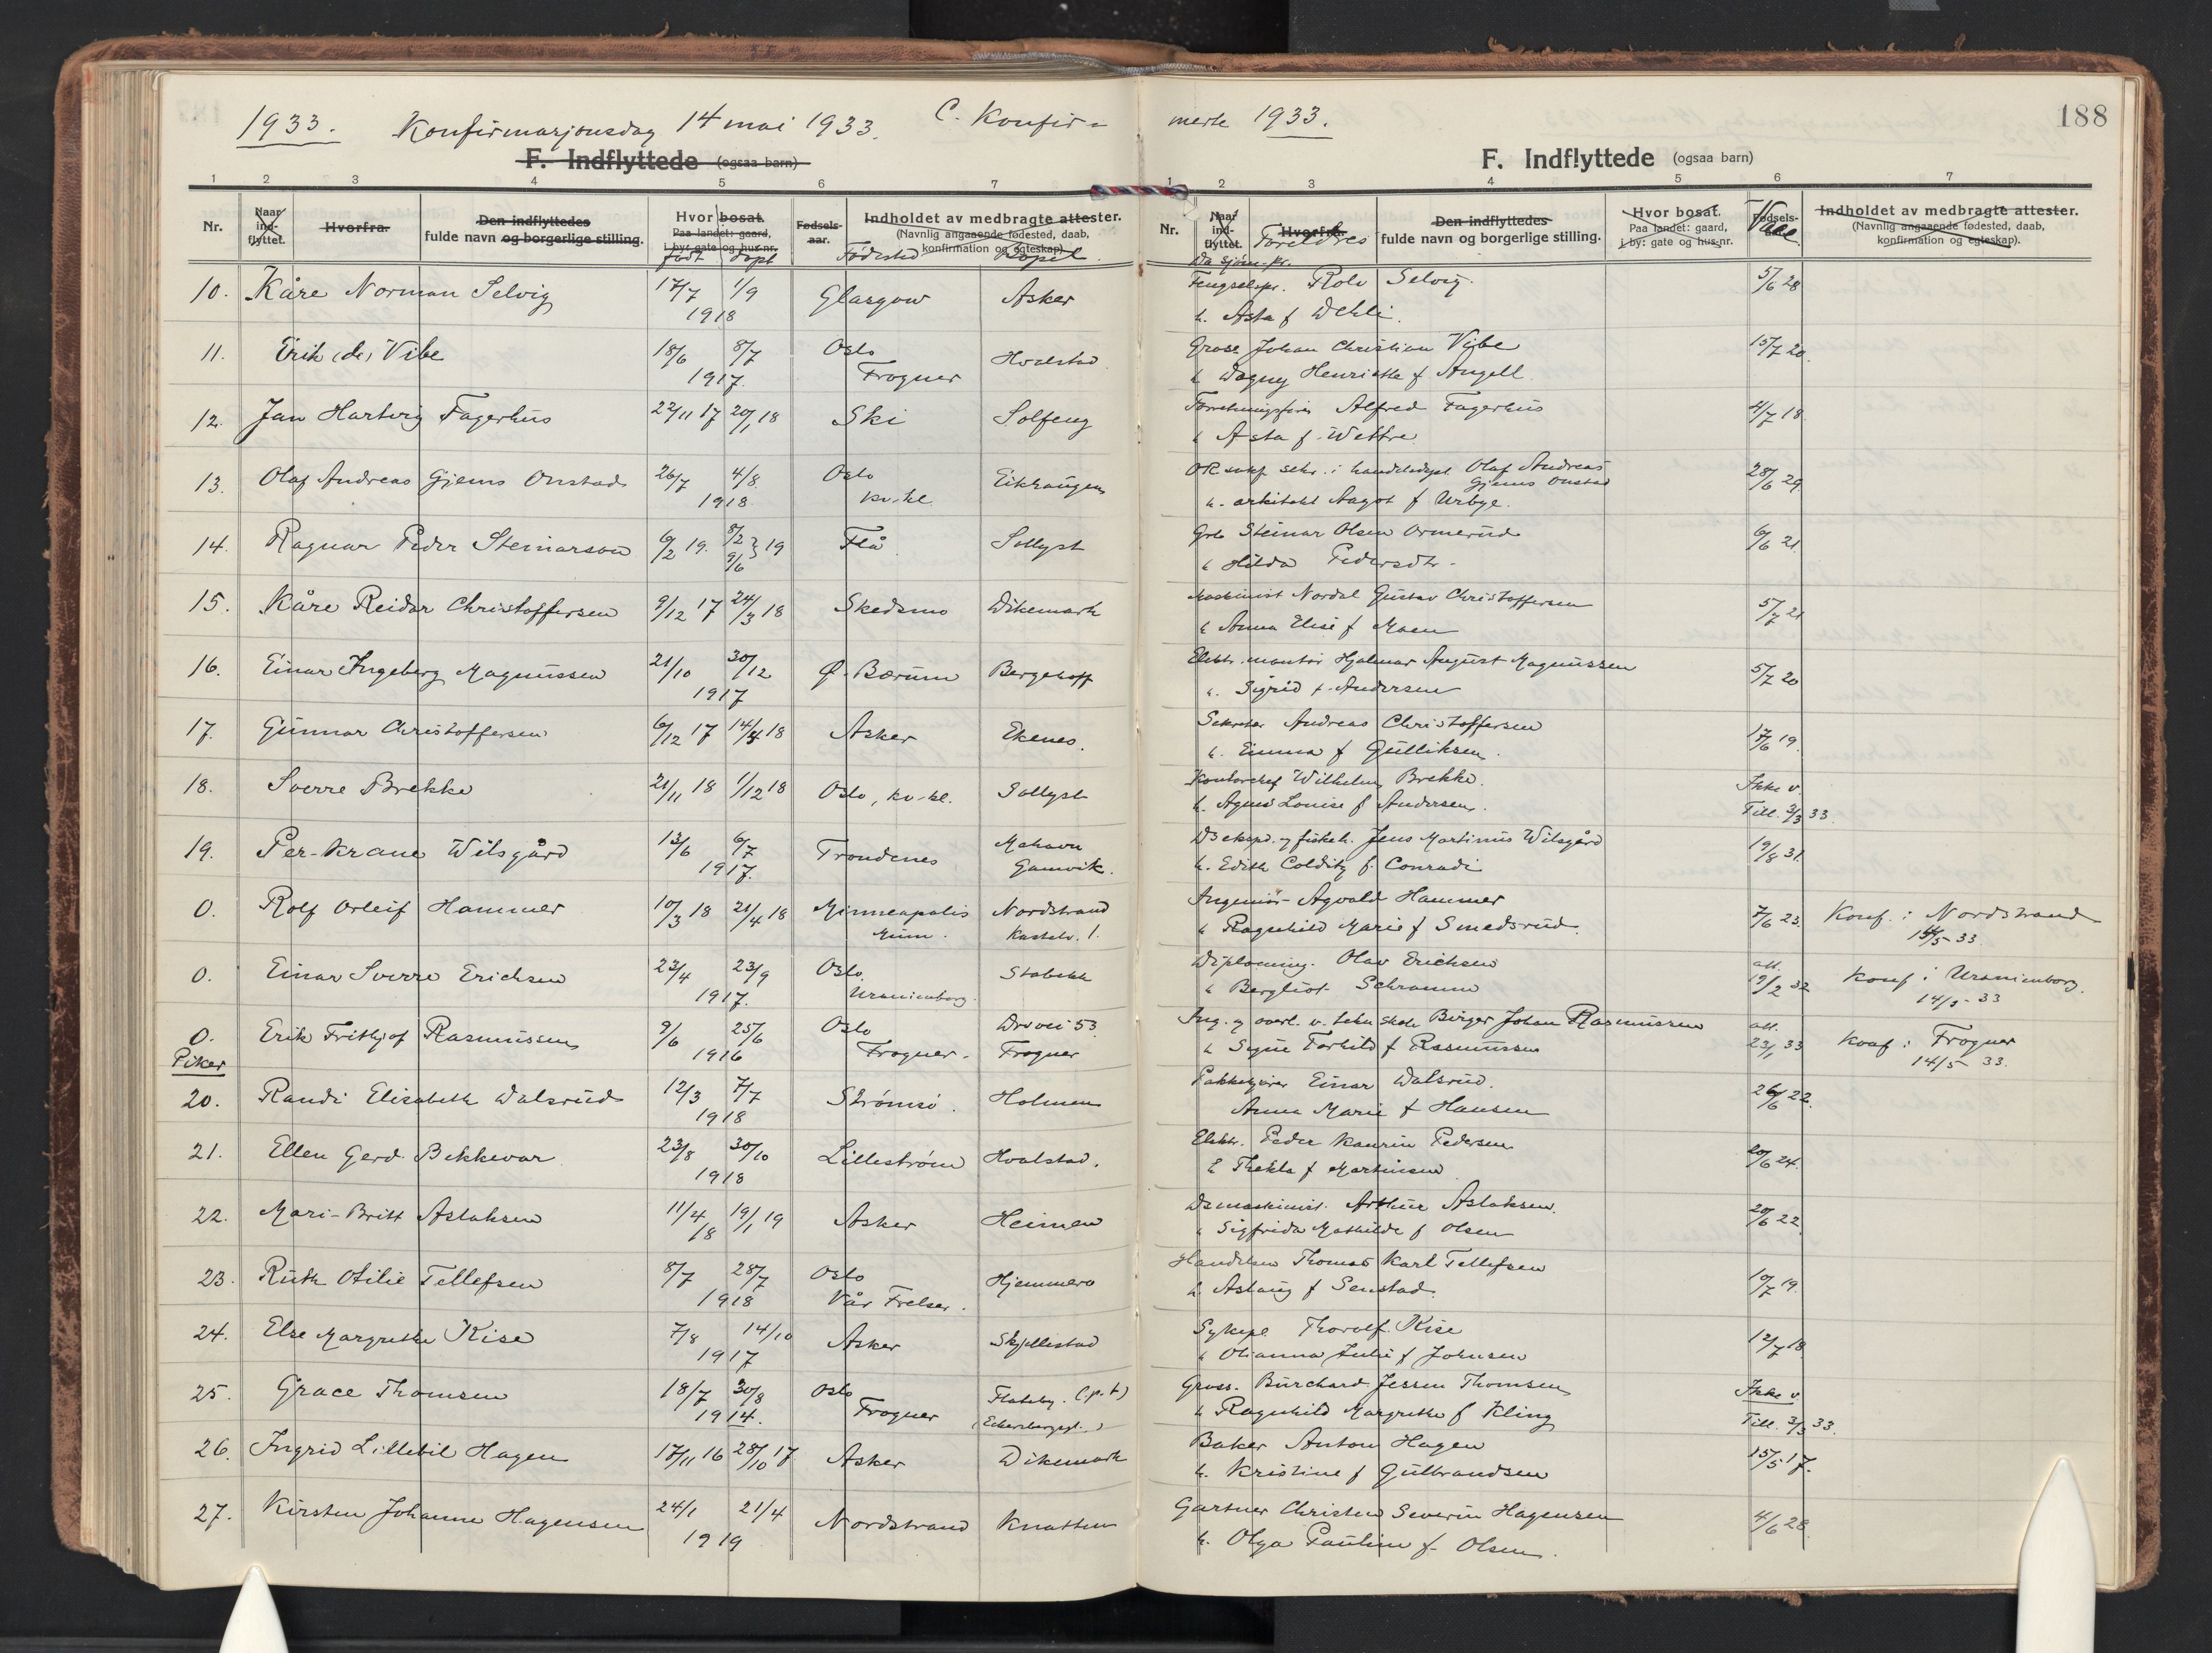 1933. Konfirmasjonsdag 14 mai 1933. C. Konfir-
F. Indflyttede (ogsaa barn)
1 2 3 4 5 6 7
Nr. Naar ind-flyttet. Hvorfra. Den indflyttedes fulde navn og borgerlige stilling. Hvor bosat. Paa landet: gaard, i by: gate og hus-nr. Fødsels-aar. Indholdet av medbragte attester. (Navnlig angaaende fødested, daab, konfirmation og egteskap).
født døpt Fødested Bopel.
10. Kåre Norman Selvig 17/7 1/9 1918 Glasgow Asker
11. Erik (de) Vibe 18/6 8/7 1917. Oslo Frogner Hvalstad.
12. Jan Hartvig Fagerhus 22/11 17 20/1 18 Ski Solfeng
13. Olaf Andreas Gjems Onstad 26/7 4/8 1918. Oslo kv.kl. Eikhaugen
14. Ragnar Peder Steinarson 6/2 19. 8/2 9/6 } 19 Flå Sollyst
15. Kåre Reidar Christoffersen 9/12 17 24/3 18 Skedsmo Dikemark
16. Einar Ingeberg Magnussen 21/10 30/12 1917 Ø. Bærum Bergehoff
17. Gunnar Christoffersen 6/12 17 14/4 18 Asker Ekenes.
18. Sverre Brekke 21/11 18 1/12 18 Oslo, kv.kl. Sollyst
19. Per-Krane Wilsgård 13/6 6/7 1917. Trondenes Mehavn Gamvik.
0. Rolf Orleif Hammer 10/3 18 21/4 18 Minneapolis Minn. Nordstrand Kastelv. 1.
0. Einar Sverre Erichsen 23/4 23/9 1917. Oslo Uranienborg. Stabekk
0. Erik Frithjof Rasmussen 9/6 25/6 1916 Oslo Frogner. Drvei 53 Frogner
Piker
20. Randi Elisabeth Walsrud 12/3 7/7 1918 Strømsø. Holmen
21. Ellen Gerd Bekkevar 23/8 30/10 1918 Lillestrøm Hvalstad.
22. Mari-Britt Aslaksen 11/4 18 19/1 19 Asker Heimen
23. Ruth Otilie Tellefsen 8/7 28/7 1918 Oslo Vår Frelser. Hjemmero
24. Else Margrethe Kise 7/8 14/10 1917 Asker Skjellestad
25. Grace Thomsen 18/7 30/8 1914. Oslo Frogner Flateby. (p.t) (Eckersbergsgt.)
26. Ingrid Lillebil Hagen 17/11 16 28/10 17 Asker Dikemark
27. Kirsten Johanne Hagensen 24/1 21/4 1919 Nordstrand Knatten
merte 1933. 188
F. Indflyttede (ogsaa barn)
1 2 3 4 5 6 7
Nr. Naar ind-flyttet. Hvorfra. Den indflyttedes fulde navn og borgerlige stilling. Hvor bosat. Paa landet: gaard, i by: gate og hus-nr. Fødsels-aar. Indholdet av medbragte attester. (Navnlig angaaende fødested, daab, konfirmation og egteskap).
Foreldres Vacc.
Da sjøm.pr.
Fengselspr. Rolv Selvig. 5/6 28
h. Asta f Dehli.
Gross. Johan Christian Vibe 15/7 20
h Dagny Henriette f Angell
Forretningsfører Alfred Fagerhus 4/7 18
h Asta f. Wettre
Olaf Andreas Gjems Onstad 28/6 29
h. arkitekt Aagot f Urbye.
Grb Steinar Olsen Ormerud 6/6 21
h Hilda Pedersdtr.
Maskinist Nordal Gustav Christoffersen 5/7 21
h Anna Elise f Moen
Elektr. montør Hjalmar August Magnussen 5/7 20
h. Sigrid f. Andersen
Sekretær Andreas Christoffersen 17/6 19.
h. Emma f Gulliksen.
Kontorchef Wilhelm Brekke. Ikke v.
h. Agnes Louise f Andersen. Till. 3/3 33.
Dsekspd. og fiskeh. Jens Martinus Wilsgård 19/8 31.
h. Edith Colditz f. Conradi
Ingeniør Agvald Hammer 7/6 23. Konf. i Nordstrand
h Ragnhild Marie f Smedsrud. 14/5 33.
Diploming. Olav Erichsen att. 19/2 32 Konf i Uranienborg.
h Bergliot Schramm 14/5 33
Ing. og overl. v. tekn skole Birger Johan Rasmussen att. 23/1 33 Konf i Frogner
h Signe Torhild f Rasmussen 14/5 33.
Pakkhusfor. Einar Walsrud. 26/6 22.
Anna Marie f Hansen
Elektr. Peder Kaurin Pedersen 20/6 24.
h Thekla f Martinsen
Dsmaskinist. Arthur Aslaksen. 20/6 22
h Sigfrida Mathilde f Olsen
Handelsm Thomas Karl Tellefsen 10/7 19.
h. Aslaug f Senstad.
Sykepl Thorolf Kise 12/7 18
h Olianna Julie f Johnsen
Gross. Burchard Jessen Thomsen Ikke v
h Ragnhild Margrethe f Kling Till. 3/3 33.
Baker Anton Hagen 15/5 17.
h. Kristine f Gulbrandsen
Gartner Christen Severin Hagensen 4/6 28.
h. Olga Pauline f Olsen.